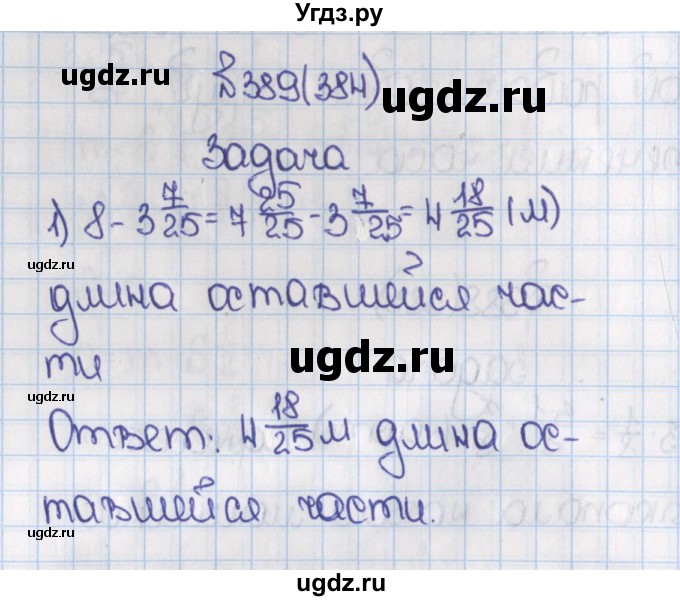 Угдз.ру
ugdz.ru
№389(384)
ugdz.ru
Задача
1) 8 - 3 7/25 = 7 25/25 - 3 7/25 = 4 18/25 (м)
ugdz.ru
длина оставшейся час-
ugdz.ru
ти
ugdz.ru
Ответ: 4 18/25 м длина ос-
тавшейся части.
ugdz.ru
ugdz.ru